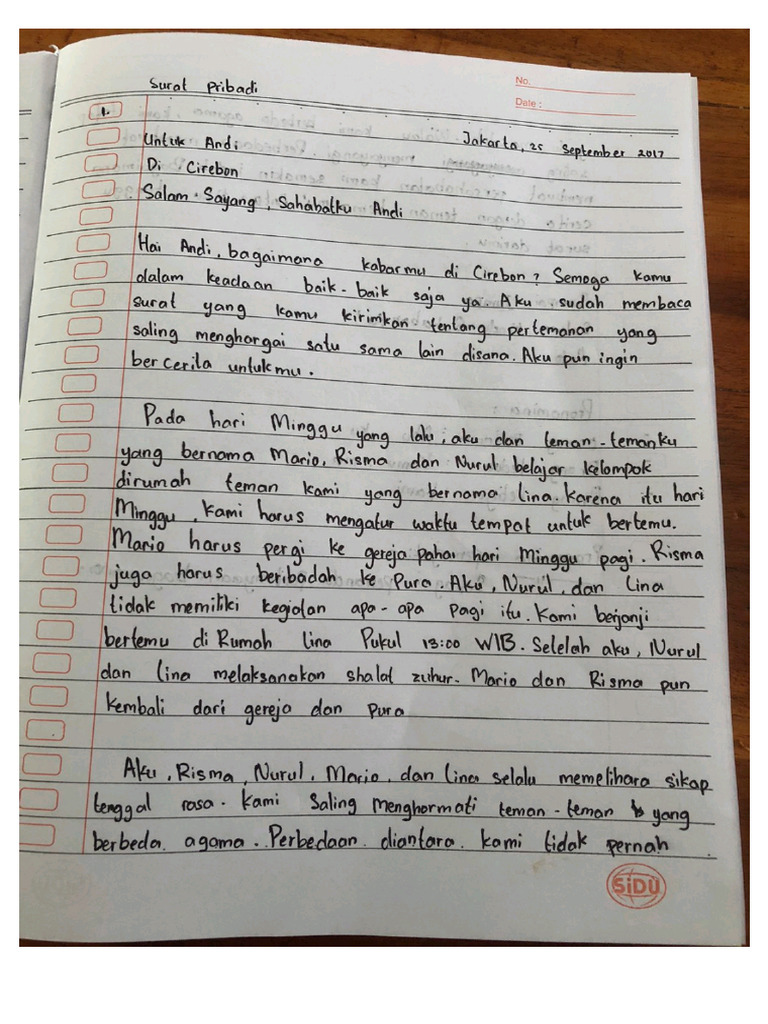 Surat Pribadi
No.
Date :
1.
Jakarta, 25 September 2017
Untuk Andi
Di Cirebon
Salam Sayang, Sahabatku Andi
Hai Andi, bagaimana kabarmu di Cirebon? Semoga kamu
dalam keadaan baik-baik saja ya. Aku sudah membaca
surat yang kamu kirimkan tentang pertemanan yang
saling menghargai satu sama lain disana. Aku pun ingin
bercerita untukmu.
Pada hari Minggu yang lalu, aku dan teman-temanku
yang bernama Mario, Risma dan Nurul belajar kelompok
dirumah teman kami yang bernama Lina. Karena itu hari
Minggu, Kami harus mengatur waktu tempat untuk bertemu.
Mario harus pergi ke gereja pahai hari Minggu pagi. Risma
juga harus beribadah ke Pura. Aku, Nurul, dan Lina
tidak memiliki kegiatan apa-apa pagi itu. Kami berjanji
bertemu di Rumah Lina Pukul 13:00 WIB. Setelah aku, Nurul
dan Lina melaksanakan shalat zuhur. Mario dan Risma pun
kembali dari gereja dan Pura
Aku, Risma, Nurul, Mario, dan Lina selalu memelihara sikap
tenggal rasa. Kami Saling Menghormati teman-teman yang
berbeda agama. Perbedaan diantara kami tidak pernah
SiDU